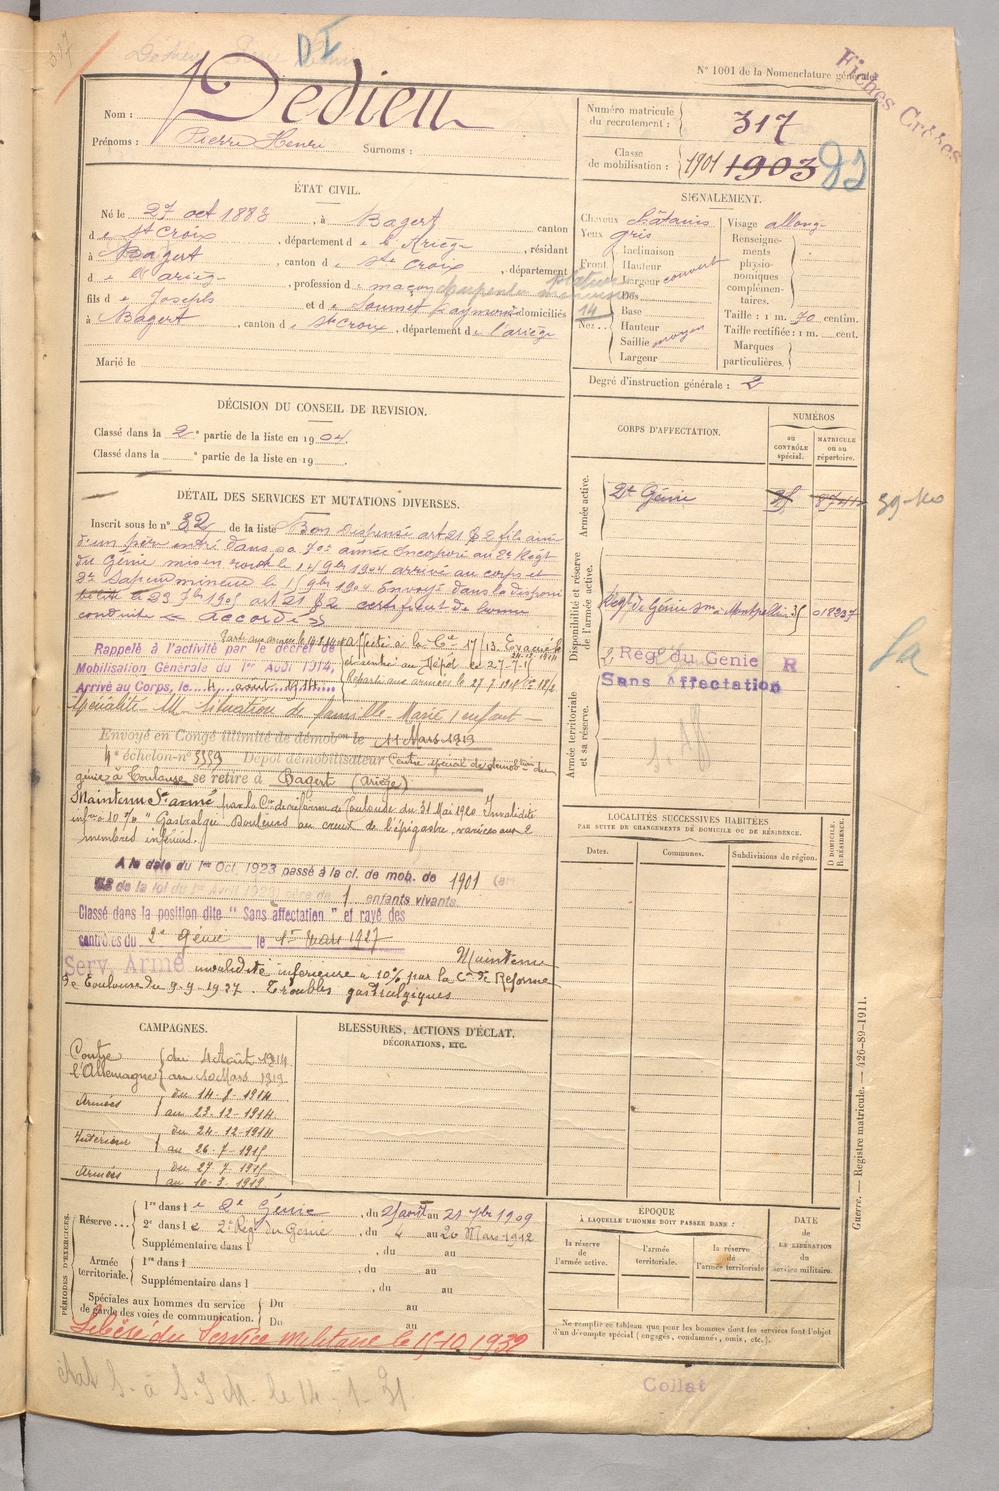 317
D I
N° 1001 de la Nomenclature générale
Fiches Créées
Nom : Dedieu
Prénoms : Pierre Henri Surnoms :
Numéro matricule du recrutement : 317
Classe de mobilisation : 1901 1903
ÉTAT CIVIL.
Né le 27 oct 1883, à Bagert canton
d e St Croix, département d e l'Ariège, résidant
à Bagert, canton d e Ste Croix, département
d e l'ariège, profession d e maçon charpentier
fils d e Joseph et d e Soumet domiciliés
à Bagert, canton d e St Croix, département d e l'ariège
Marié le
SIGNALEMENT.
Cheveux châtains
Yeux gris
Front
Inclinaison
Hauteur
Largeur couvert
Nez
Dos
Base
Hauteur
Saillie moyen
Largeur
14
Visage allong
Renseignements physionomiques complémentaires.
Taille : 1 m. 70 centim.
Taille rectifiée : 1 m. cent.
Marques particulières.
Degré d'instruction générale : 2
DÉCISION DU CONSEIL DE REVISION.
Classé dans la 2e partie de la liste en 1904.
Classé dans la e partie de la liste en 19 .
DÉTAIL DES SERVICES ET MUTATIONS DIVERSES.
Inscrit sous le n° 32 de la liste Bon Dispensé art 21 § 2 fils ainé
d'un père entré dans sa 70e année Incorporé au 2e Régt
du Génie mis en route le 14 9bre 1904 arrivé au corps et
2e Sapeur mineur le 15 9bre 1904 Envoyé dans la disponi
bilité le 23 7bre 1905 art 21 § 2 certificat de bonne
conduite « Accordé »
Rappelé à l'activité par le décret de
Mobilisation Générale du 1er Août 1914,
Arrivé au Corps, le 4 août 1914
affecté à la Cie 17/13. Evacué le
24-12-1914
et rentré au dépôt le 27-7-1
Reparti aux armées le 27 7 1915
Spécialité M. Situation de famille Marié 1 enfant
Envoyé en Congé illimité de démobon le 11 Mars 1919
4e échelon n° 3559 Dépôt démobilisateur Centre spécial de démobtion du
génie à Toulouse se retire à Bagert (Ariège)
Maintenu S. armé par la Con de réforme de Toulouse du 31 Mai 1920 Invalidité
infre à 10 % "Gastralgie Douleurs au creux de l'épigastre, varices aux 2
membres infér.
A la date du 1er Oct. 1923 passé à la cl. de mob. de 1901
58 de la loi du 1er Avril 1923) père de 1 enfants vivants.
Classé dans la position dite " Sans affectation " et rayé des
contrôles du 2e Génie le 1er Mars 1927
Maintenu
Serv. Armé invalidité inférieure à 10% par la Con de Réforme
de Toulouse du 9-9-1927. Troubles gastralgiques
CORPS D'AFFECTATION.
NUMÉROS
au CONTRÔLE spécial.
MATRICULE ou au répertoire.
Armée active.
2e Génie
Disponibilité et réserve de l'armée active.
Régt de Génie Montpellier 35 018237
2 Reg! du Genie R
Sans Affectation
Armée territoriale et sa réserve.
LOCALITÉS SUCCESSIVES HABITÉES
PAR SUITE DE CHANGEMENTS DE DOMICILE OU DE RÉSIDENCE.
Dates. Communes. Subdivisions de région.
D DOMICILE. R RÉSIDENCE.
CAMPAGNES.
Contre l'Allemagne du 4 Août 1914
au 10 Mars 1919
Armées du 14-8-1914
au 23-12-1914
Intérieur du 24-12-1914
au 26-7-1915
Armées du 27 7 1915
au 10-3-1919
BLESSURES, ACTIONS D'ÉCLAT,
DÉCORATIONS, ETC.
PÉRIODES D'EXERCICES.
Réserve...
1re dans l e 2e Génie, du août au 21 7bre 1909
2e dans l e 2e Reg du Genie, du 4 au 20 Mars 1912
Supplémentaire dans l , du au
Armée territoriale.
1re dans l , du au
Supplémentaire dans l , du au
Spéciales aux hommes du service de garde des voies de communication.
Du au
Du au
Libéré du Service militaire le 15-10-1932
ÉPOQUE
À LAQUELLE L'HOMME DOIT PASSER DANS :
la réserve de l'armée active.
l'armée territoriale.
la réserve de l'armée territoriale
DATE de LA LIBÉRATION du service militaire.
Ne remplir ce tableau que pour les hommes dont les services font l'objet
d'un décompte spécial (engagés, condamnés, omis, etc.).
Guerre. — Registre matricule. — 426-89-1911.
Collat